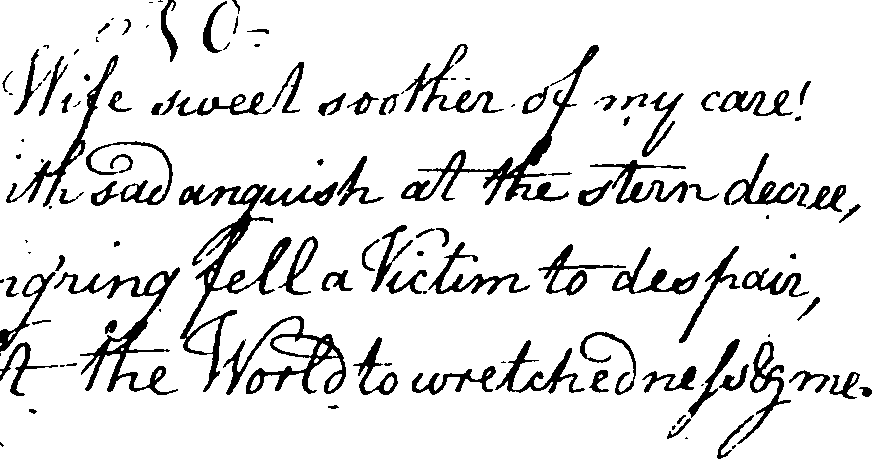 Wife sweet soother of my care!
ith sad anguish at the stern decree,
ng'ring fell a Victim to despair,
t the World to wretchedness & me.